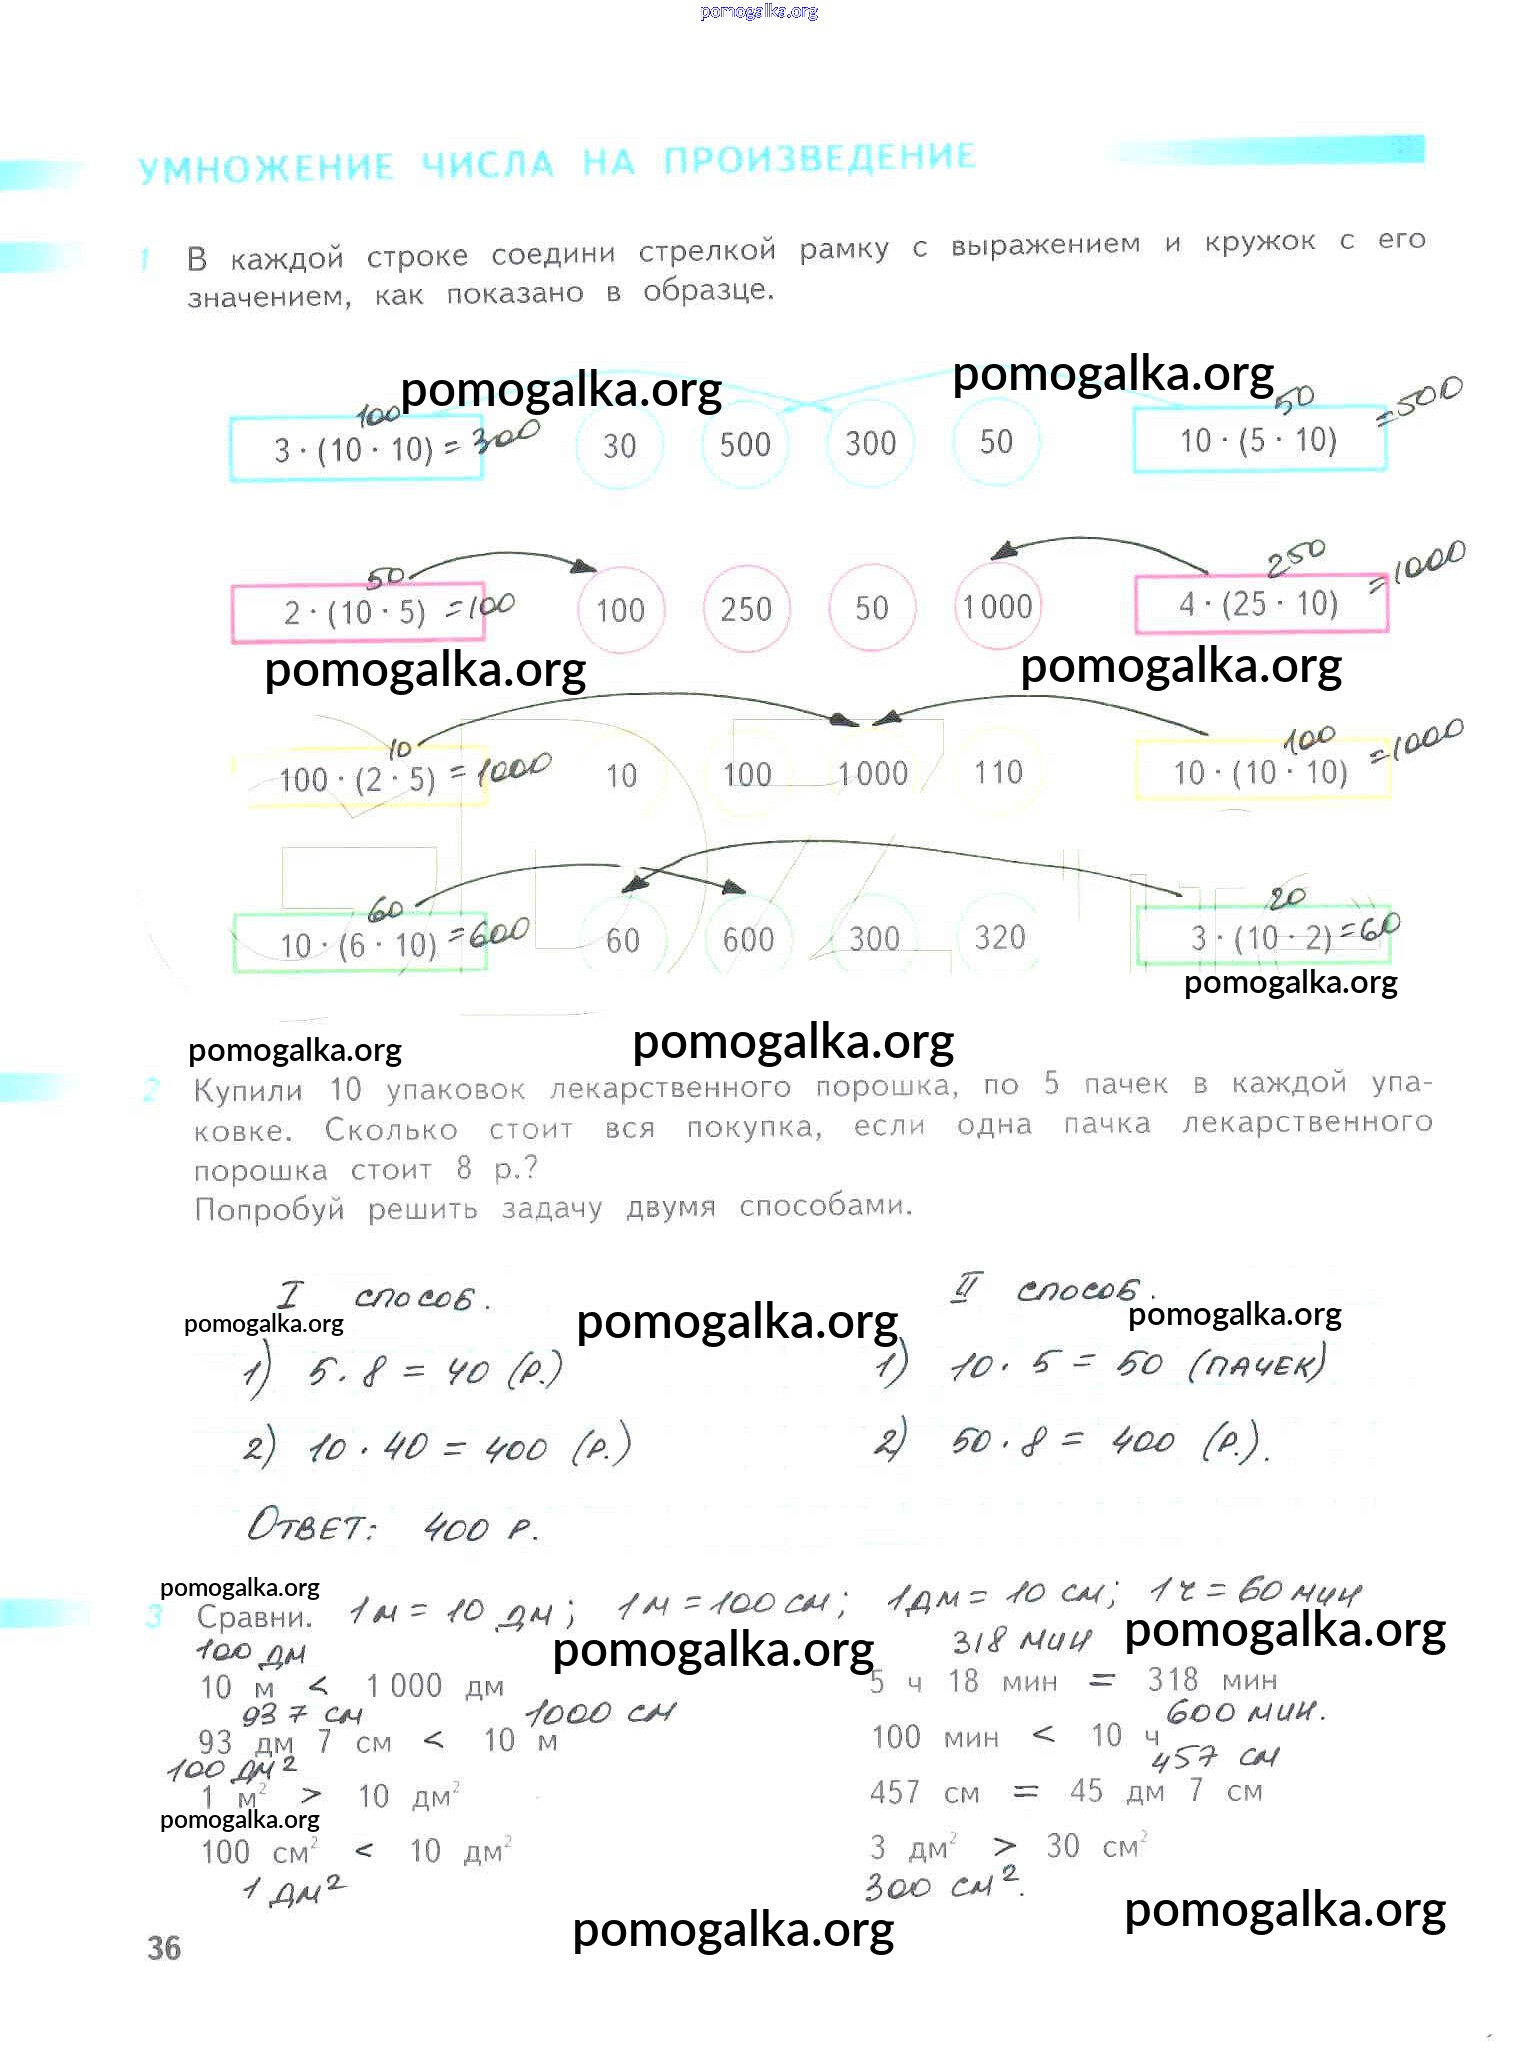 pomogalka.org
УМНОЖЕНИЕ ЧИСЛА НА ПРОИЗВЕДЕНИЕ
1 В каждой строке соедини стрелкой рамку с выражением и кружок с его
значением, как показано в образце.
pomogalka.org pomogalka.org
100 50
3 · (10 · 10) = 300 30 500 300 50 10 · (5 · 10) = 500
50 250
2 · (10 · 5) = 100 100 250 50 1 000 4 · (25 · 10) = 1000
pomogalka.org pomogalka.org
10 100
100 · (2 · 5) = 1000 10 100 1 000 110 10 · (10 · 10) = 1000
60 20
10 · (6 · 10) = 600 60 600 300 320 3 · (10 · 2) = 60
pomogalka.org
pomogalka.org pomogalka.org
2 Купили 10 упаковок лекарственного порошка, по 5 пачек в каждой упа-
ковке. Сколько стоит вся покупка, если одна пачка лекарственного
порошка стоит 8 р.?
Попробуй решить задачу двумя способами.
I способ. II способ.
pomogalka.org pomogalka.org pomogalka.org
1) 5 · 8 = 40 (р.) 1) 10 · 5 = 50 (пачек)
2) 10 · 40 = 400 (р.) 2) 50 · 8 = 400 (р.).
Ответ: 400 р.
pomogalka.org
3 Сравни. 1 м = 10 дм; 1 м = 100 см; 1 дм = 10 см; 1 ч = 60 мин
pomogalka.org pomogalka.org
100 дм 318 мин
10 м < 1 000 дм 5 ч 18 мин = 318 мин
937 см 1000 см 600 мин.
93 дм 7 см < 10 м 100 мин < 10 ч
100 дм² 457 см
1 м² > 10 дм² 457 см = 45 дм 7 см
pomogalka.org
100 см² < 10 дм² 3 дм² > 30 см²
1 дм² 300 см².
pomogalka.org pomogalka.org
36